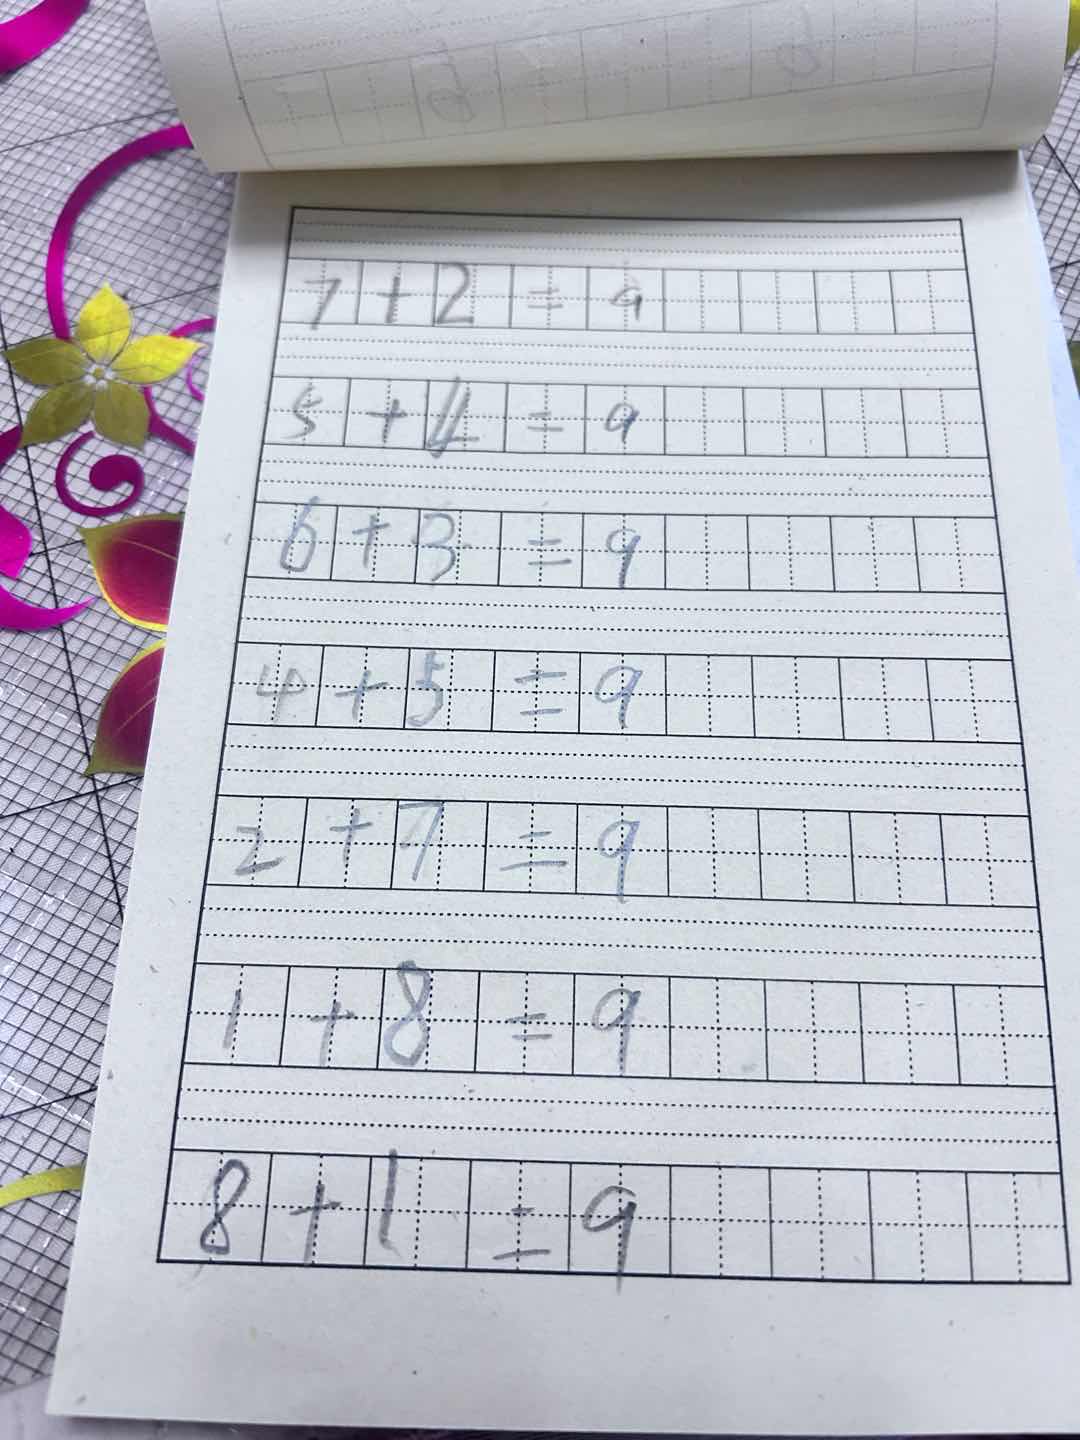 7+2=9
5+4=9
6+3=9
4+5=9
2+7=9
1+8=9
8+1=9